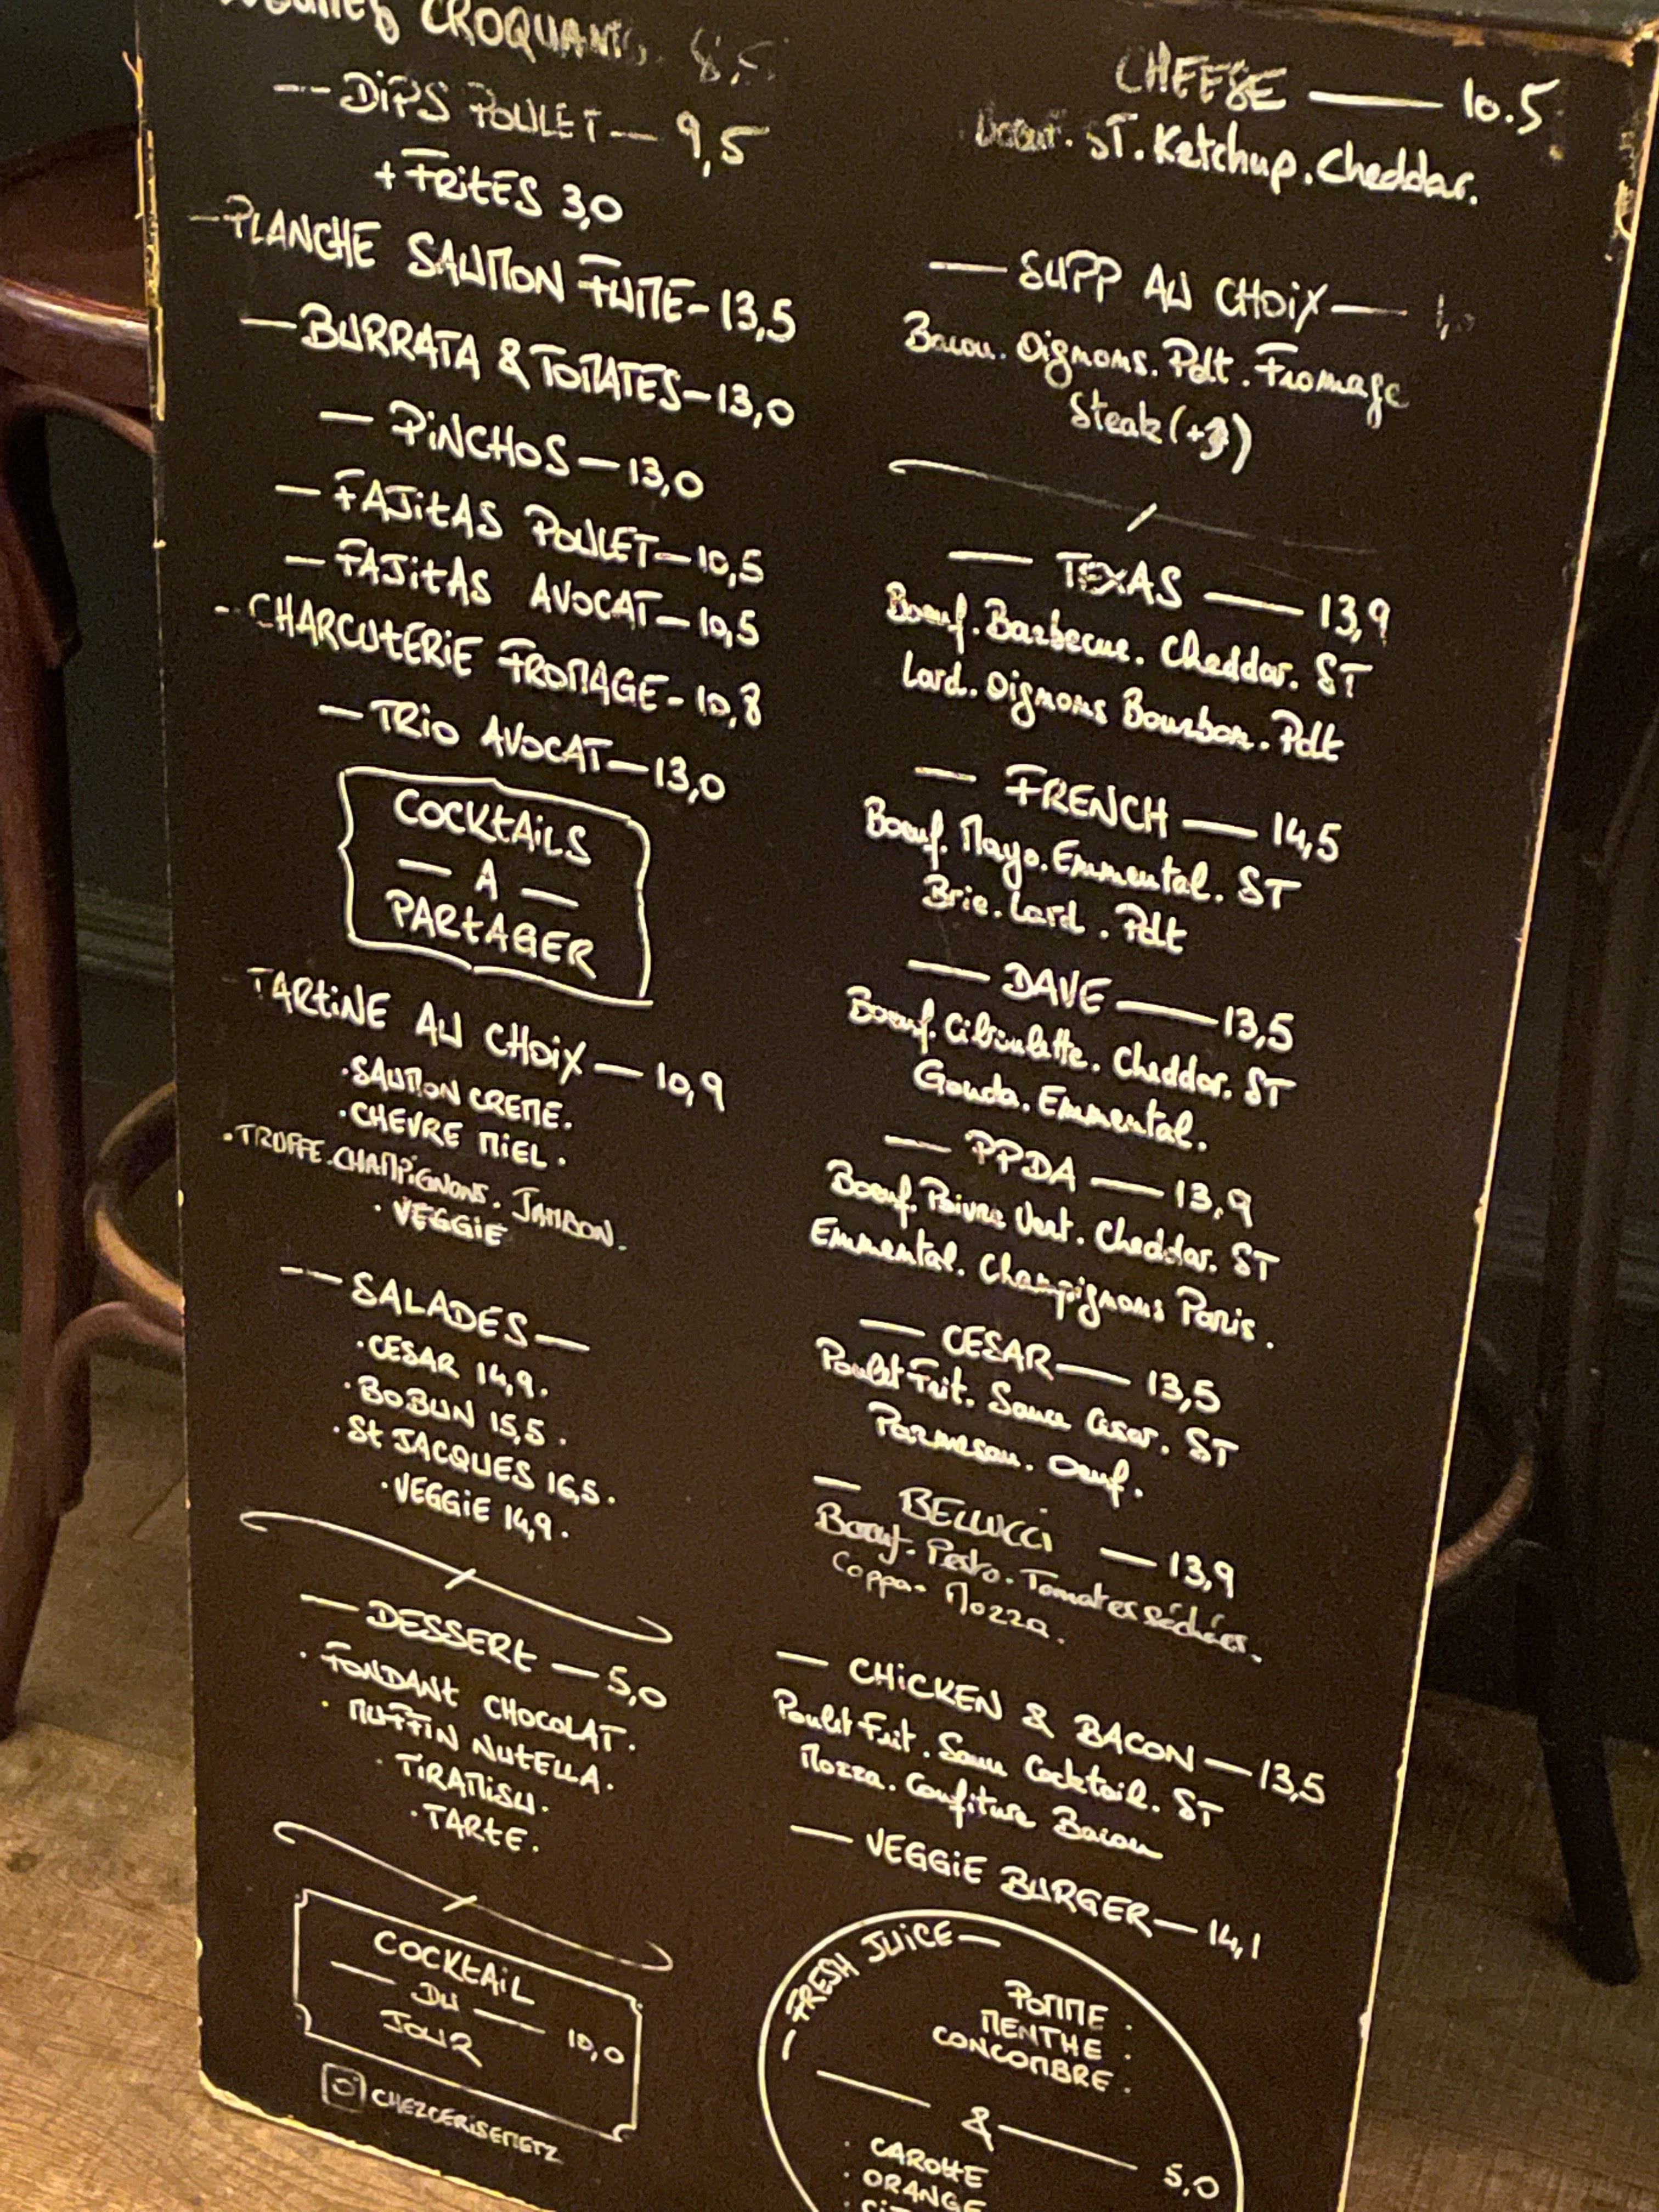 CROQUANTS. 8,5
-- DiPS POULET — 9,5
+ FRitES 3,0
— PLANCHE SAUMON FUMÉ - 13,5
— BURRATA & TOMATES - 13,0
— PiNCHOS — 13,0
— FAJitAS POULET — 10,5
— FAJitAS AVOCAT — 10,5
-- CHARCUtERiE FROMAGE - 10,8
— TRio AVOCAT — 13,0
COCKtAiLS
— A —
PARtAGER
TARtiNE AU CHOiX — 10,9
.SAUMON CREME.
.CHEVRE MiEL.
.TRUFFE.CHAMPiGNONS. JAMBON.
. VEGGiE
-- SALADES —
.CESAR 14,9.
.BOBUN 15,5.
.St JACQUES 16,5.
.VEGGiE 14,9.
— DESSERt — 5,0
. FONDANt CHOCOLAT.
. MUFFiN NUtELLA.
. TiRAMiSU.
. TARtE.
COCKtAiL
— DU —
JOUR 10,0
CHEZCERiSEMETZ
CHEESE — 10.5
ST. Ketchup. Cheddar.
— SUPP AU CHOiX —
Bacon. Oignons. Pdt. Fromage
Steak (+3)
— TEXAS — 13,9
Boeuf. Barbecue. Cheddar. ST
Lard. Oignons Bourbon. Pdt
— FRENCH — 14,5
Boeuf. Mayo. Emmental. ST
Brie. Lard. Pdt
— DAVE — 13,5
Boeuf. Ciboulette. Cheddar. ST
Gouda. Emmental.
— PPDA — 13,9
Boeuf. Poivre Vert. Cheddar. ST
Emmental. Champignons Paris.
— CESAR — 13,5
Poulet Frit. Sauce Cesar. ST
Parmesan. Oeuf.
— BELLUCCi — 13,9
Boeuf. Pesto. Tomates séchées.
Coppa. Mozza.
— CHiCKEN & BACON — 13,5
Poulet Frit. Sauce Cocktail. ST
Mozza. Confiture Bacon
— VEGGiE BURGER — 14,1
— FRESH JUiCE —
POMME.
MENTHE.
CONCOMBRE.
— & —
5,0
. CAROttE
. ORANGE